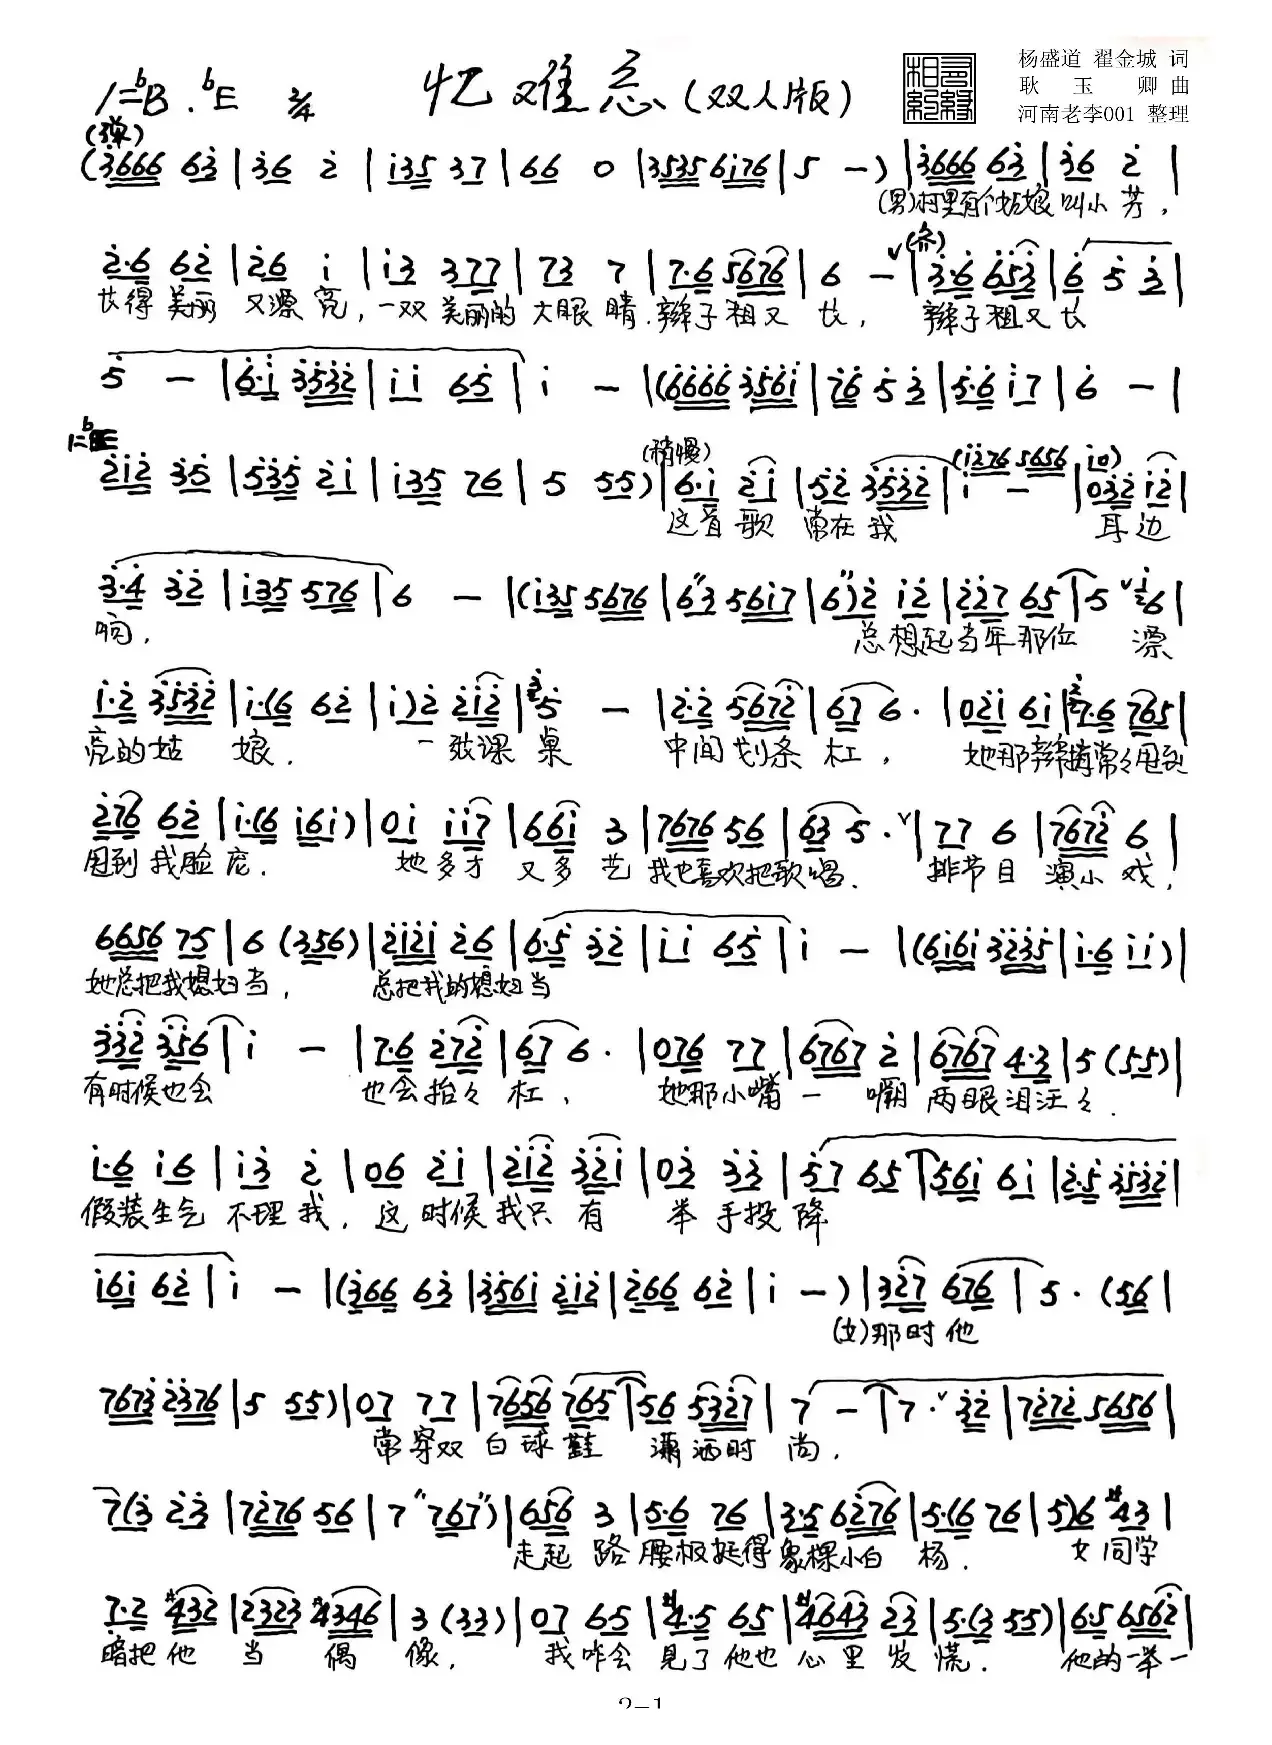 1=♭B.♭E 2/4 忆难忘(双人版)
杨盛道 翟金城 词
耿 玉 卿 曲
河南老李001 整理
(弹)
(3666 63|36 2|i35 37|66 0|3535 6i76|5 —)|3666 63|36 2|
(男)村里有个姑娘叫小芳,
2·6 62|26 i|i3 377|73 7|7·6 5676|6 —|3·6 653|6 5 3|
长得美丽 又漂亮,一双美丽的大眼睛.辫子粗又长, 辫子粗又长
5 —|6·i 3532|ii 65|i —|(6666 356i|76 5 3|5·6 i7|6 —|
1=♭E
2i2 35|535 2i|i35 76|5 55)|6·i 2i|52 3532|i —|032 i2|
(稍慢)
(i276 5656 i0)
这首歌 常在我 耳边
3·4 32|i35 576|6 —|(i35 5676|6"3 56i7|6")2 i2|227 65|5 6|
响, 总想起当年那位 漂
i·2 3532|i·(6 62|i)2 2i2|5 —|2·2 5672|67 6·|02i 6i|7·6 765|
亮的姑 娘. 一张课桌 中间划条杠, 她那辫梢常々甩到
276 62|i·(6 i6i)|0i ii7|66i 3|7676 56|63 5·|77 6|7672 6|
甩到我脸庞. 她多才又多艺我也喜欢把歌唱. 排节目演小戏,
6656 75|6 (356)|2i2i 26|6·5 32|ii 65|i —|(6i6i 3235|i·6 ii)|
她总把我媳妇当, 总把我的媳妇当
332 356|i —|7·6 272|67 6·|076 77|6767 2|6767 4·3|5 (55)|
有时候也会 也会抬々杠, 她那小嘴一噘两眼泪汪々.
i·6 i6|i3 2|06 2i|2i2 32i|03 33|57 65|56i 6i|2·5 3532|
假装生气不理我,这时候我只有 举手投降
i6i 62|i —|(366 63|356i 2i2|266 62|i —)|327 676|5·(56|
(女)那时他
7673 2376|5 55)|07 77|7656 765|56 5327|7 —|7·32|7272 5656|
常穿双白球鞋 潇洒时尚,
7(3 23|7276 56|7"767")|656 3|5·6 76|3·5 6276|5·(6 76|5)6 #43|
走起路腰板挺得象棵小白杨. 女同学
7·2 #432|2323 #4346|3 (33)|07 65|#4·5 65|#4643 23|5·(3 55)|6·5 6562|
暗把他当偶像, 我咋会见了他也心里发慌. 他的一举一
2-1